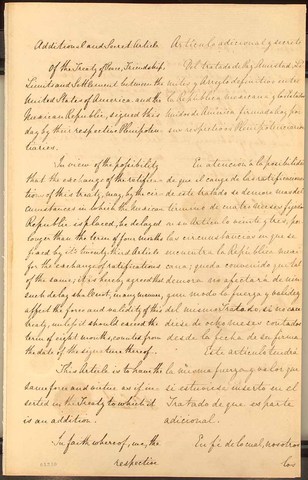 Additional and Secret Article
Of the Treaty of Peace, Friendship,
Limits and Settlement between the
United States of America and the
Mexican Republic, signed this
day by their respective Plenipoten-
tiaries.
In view of the possibility
that the exchange of the ratifica-
tions of this treaty may, by the cir-
cumstances in which the Mexican
Republic is placed, be delayed
longer than the term of four months
fixed by its twenty-third Article
for the exchange of ratifications
of the same; it is hereby agreed that
such delay shall not, in any manner,
affect the force and validity of this
treaty, unless it should exceed the
term of eight months, counted from
the date of the signature thereof.
This Article is to have the
same force and virtue as if in-
serted in the Treaty to which it
is an addition.
In faith whereof, we, the
respective
Artículo adicional y secreto
Del tratado de Paz, Amistad, Lí-
mites y Arreglo definitivo entre
la República mexicana y los Estados
Unidos de América firmado hoy por
sus respectivos Plenipotenciarios.
En atención a la posibilidad
de que el cange de las ratificaciones
de este tratado se demore mas del
término de cuatro meses fijados
en su Artículo veinte y tres, por
las circunstancias en que se
encuentra la República mexi-
cana; queda convenido que tal
demora no afectará de nin-
gun modo la fuerza y validez
del mismo tratado, si no exce-
diese de ocho meses contados
desde la fecha de su firma.
Este artículo tendrá
la misma fuerza y valor que
si estuviese inserto en el
Tratado de que es parte
adicional.
En fé de lo cual, nosotros
los